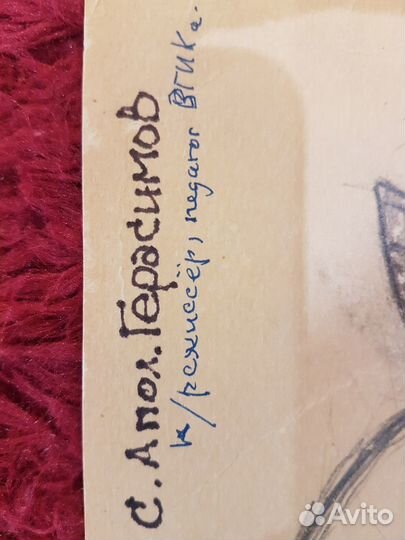 С. Апол. Герасимов
к/режиссёр, педагог ВГИКа.
Avito